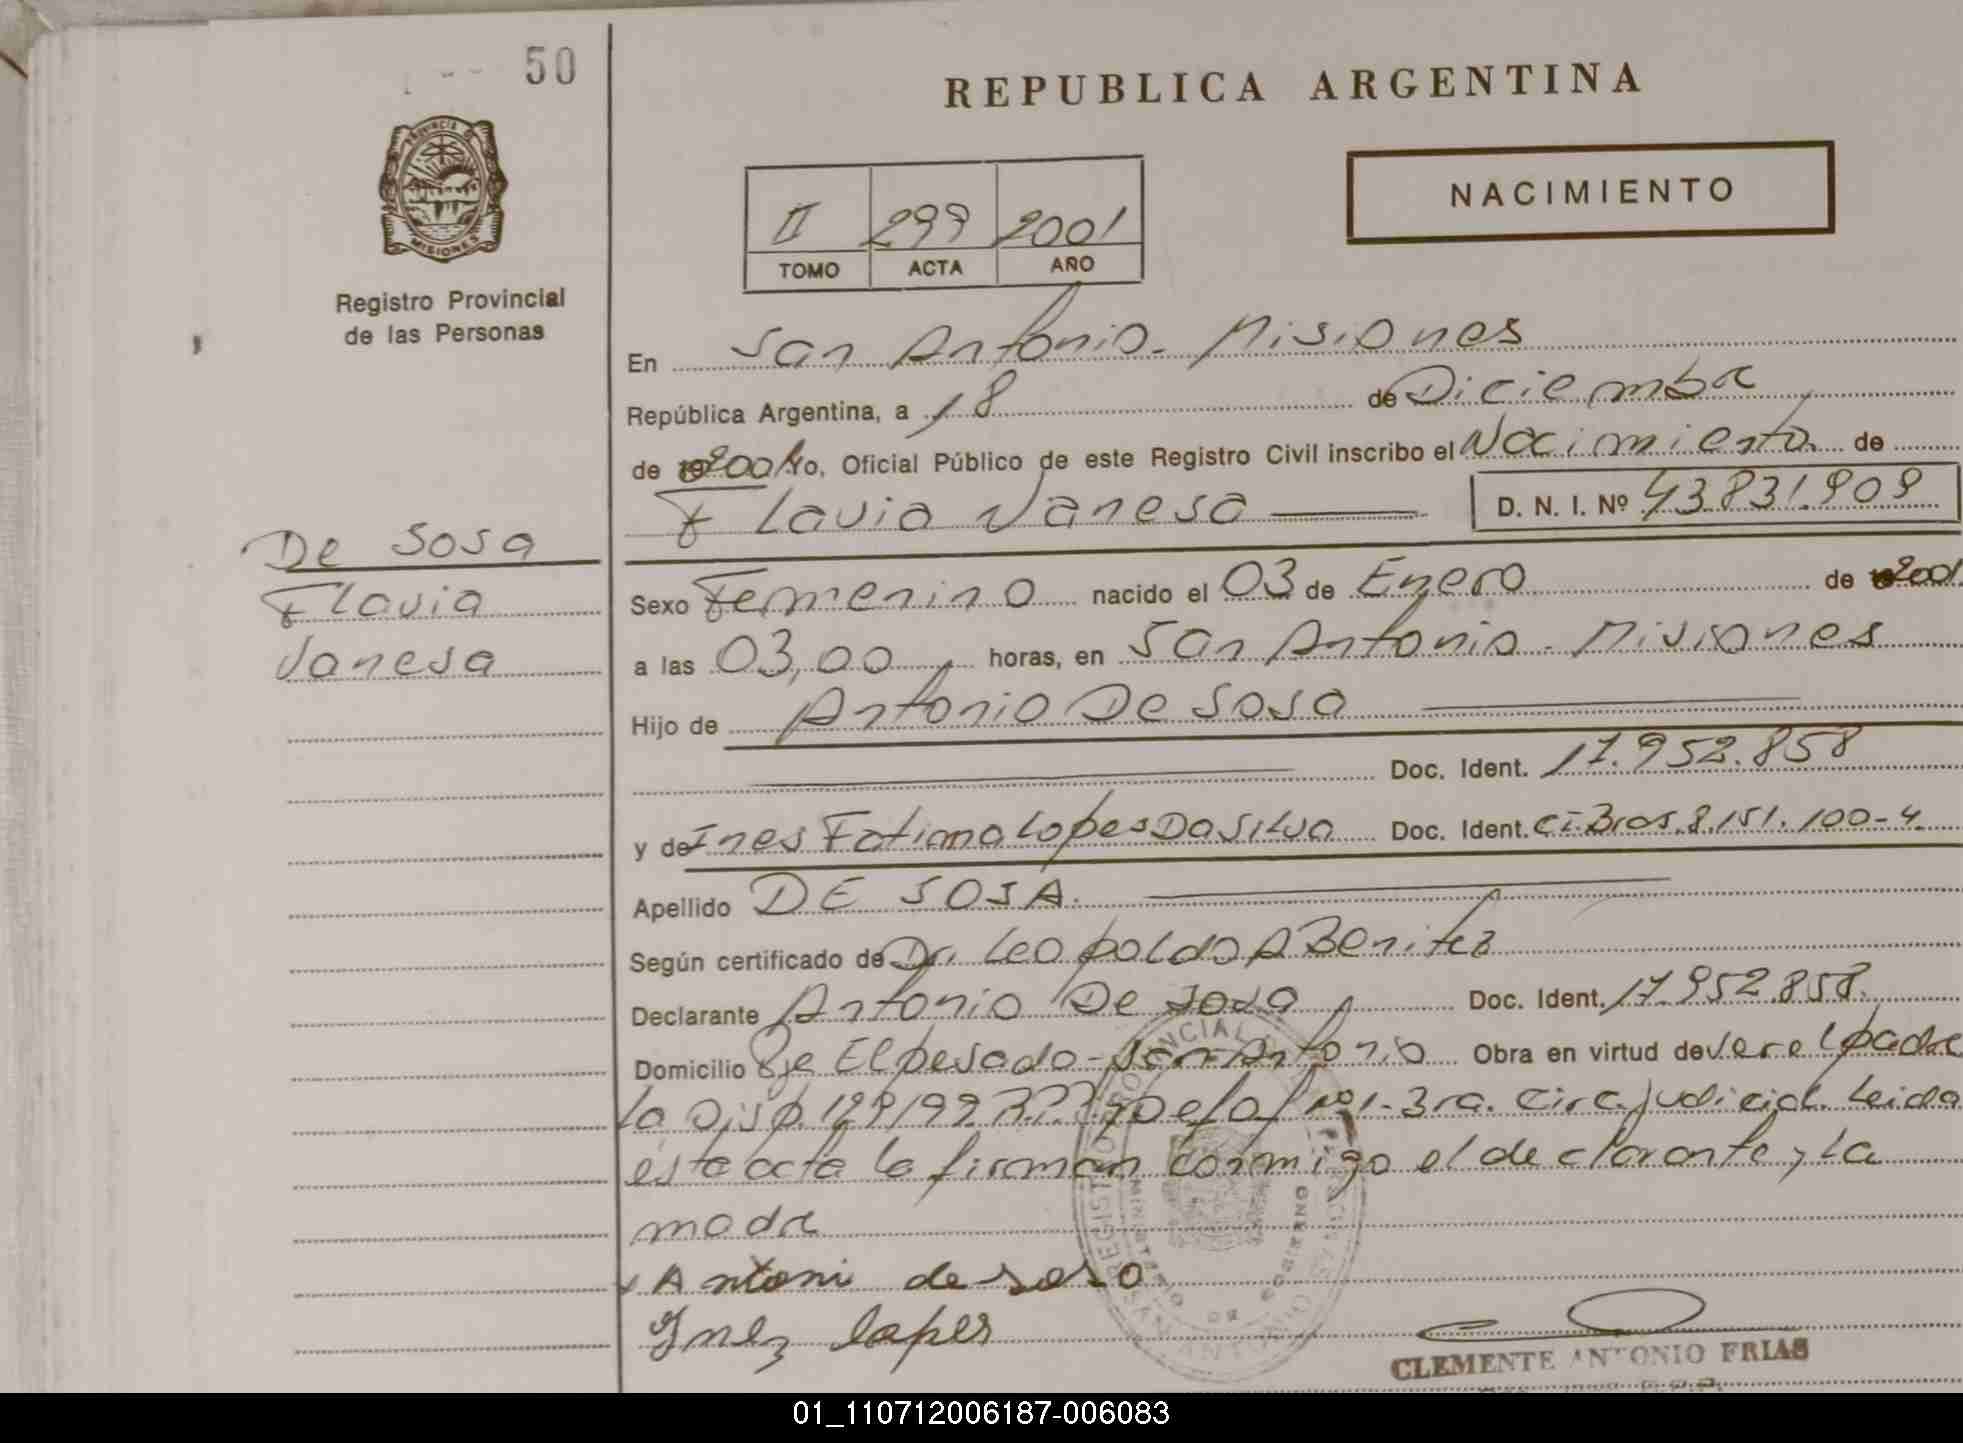 50
REPUBLICA ARGENTINA
PROVINCIA DE
MISIONES
Registro Provincial
de las Personas
NACIMIENTO
II 299 2001
TOMO ACTA AÑO
En San Antonio - Misiones
República Argentina, a 18 de Diciembre
de 2001 Yo, Oficial Público de este Registro Civil inscribo el Nacimiento de
Flavia Vanesa D. N. I. Nº 43.831.909
De Sosa
Flavia
Vanesa
Sexo Femenino nacido el 03 de Enero de 2001
a las 03,00 horas, en San Antonio - Misiones
Hijo de Antonio De Sosa
Doc. Ident. 17.952.858
y de Ines Fatima Lopes Da Silva Doc. Ident. CI. Bras. 8.151.100-4
Apellido DE SOSA.
Según certificado de Dr. Leopoldo A Benitez
Declarante Antonio De Sosa Doc. Ident. 17.952.858.
Domicilio Pje El pesado - San Antonio Obra en virtud de ser el padre
la Disp. 129/99 Nº1- 3ra. Circ. judicial. Leida
esta acta la firman conmigo el declarante y la
madre
Antoni de soso
Ines lopes
REGISTRO PROVINCIAL DE LAS PERSONAS
MINISTERIO DE GOBIERNO
SAN ANTONIO
CLEMENTE ANTONIO FRIAS
01_110712006187-006083